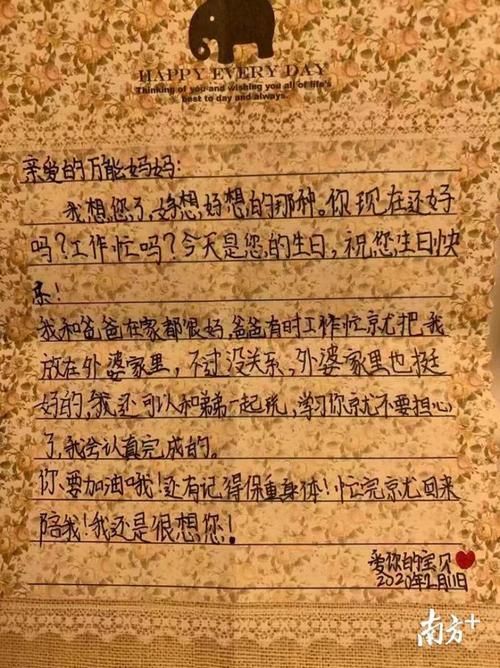 HAPPY EVERY DAY
Thinking of you and wishing you all of life's
best to day and always.
亲爱的万能妈妈:
我想您了,好想好想的那种。你现在还好
吗?工作忙吗?今天是您的生日,祝您生日快
乐!
我和爸爸在家都很好,爸爸有时工作忙就把我
放在外婆家里,不过没关系,外婆家里也挺
好的,我还可以和弟弟一起玩,学习你就不要担心
了,我会认真完成的。
你要加油哦!还有记得保重身体!忙完就回来
陪我!我还是很想您!
爱你的宝贝
2020年2月11日
南方+